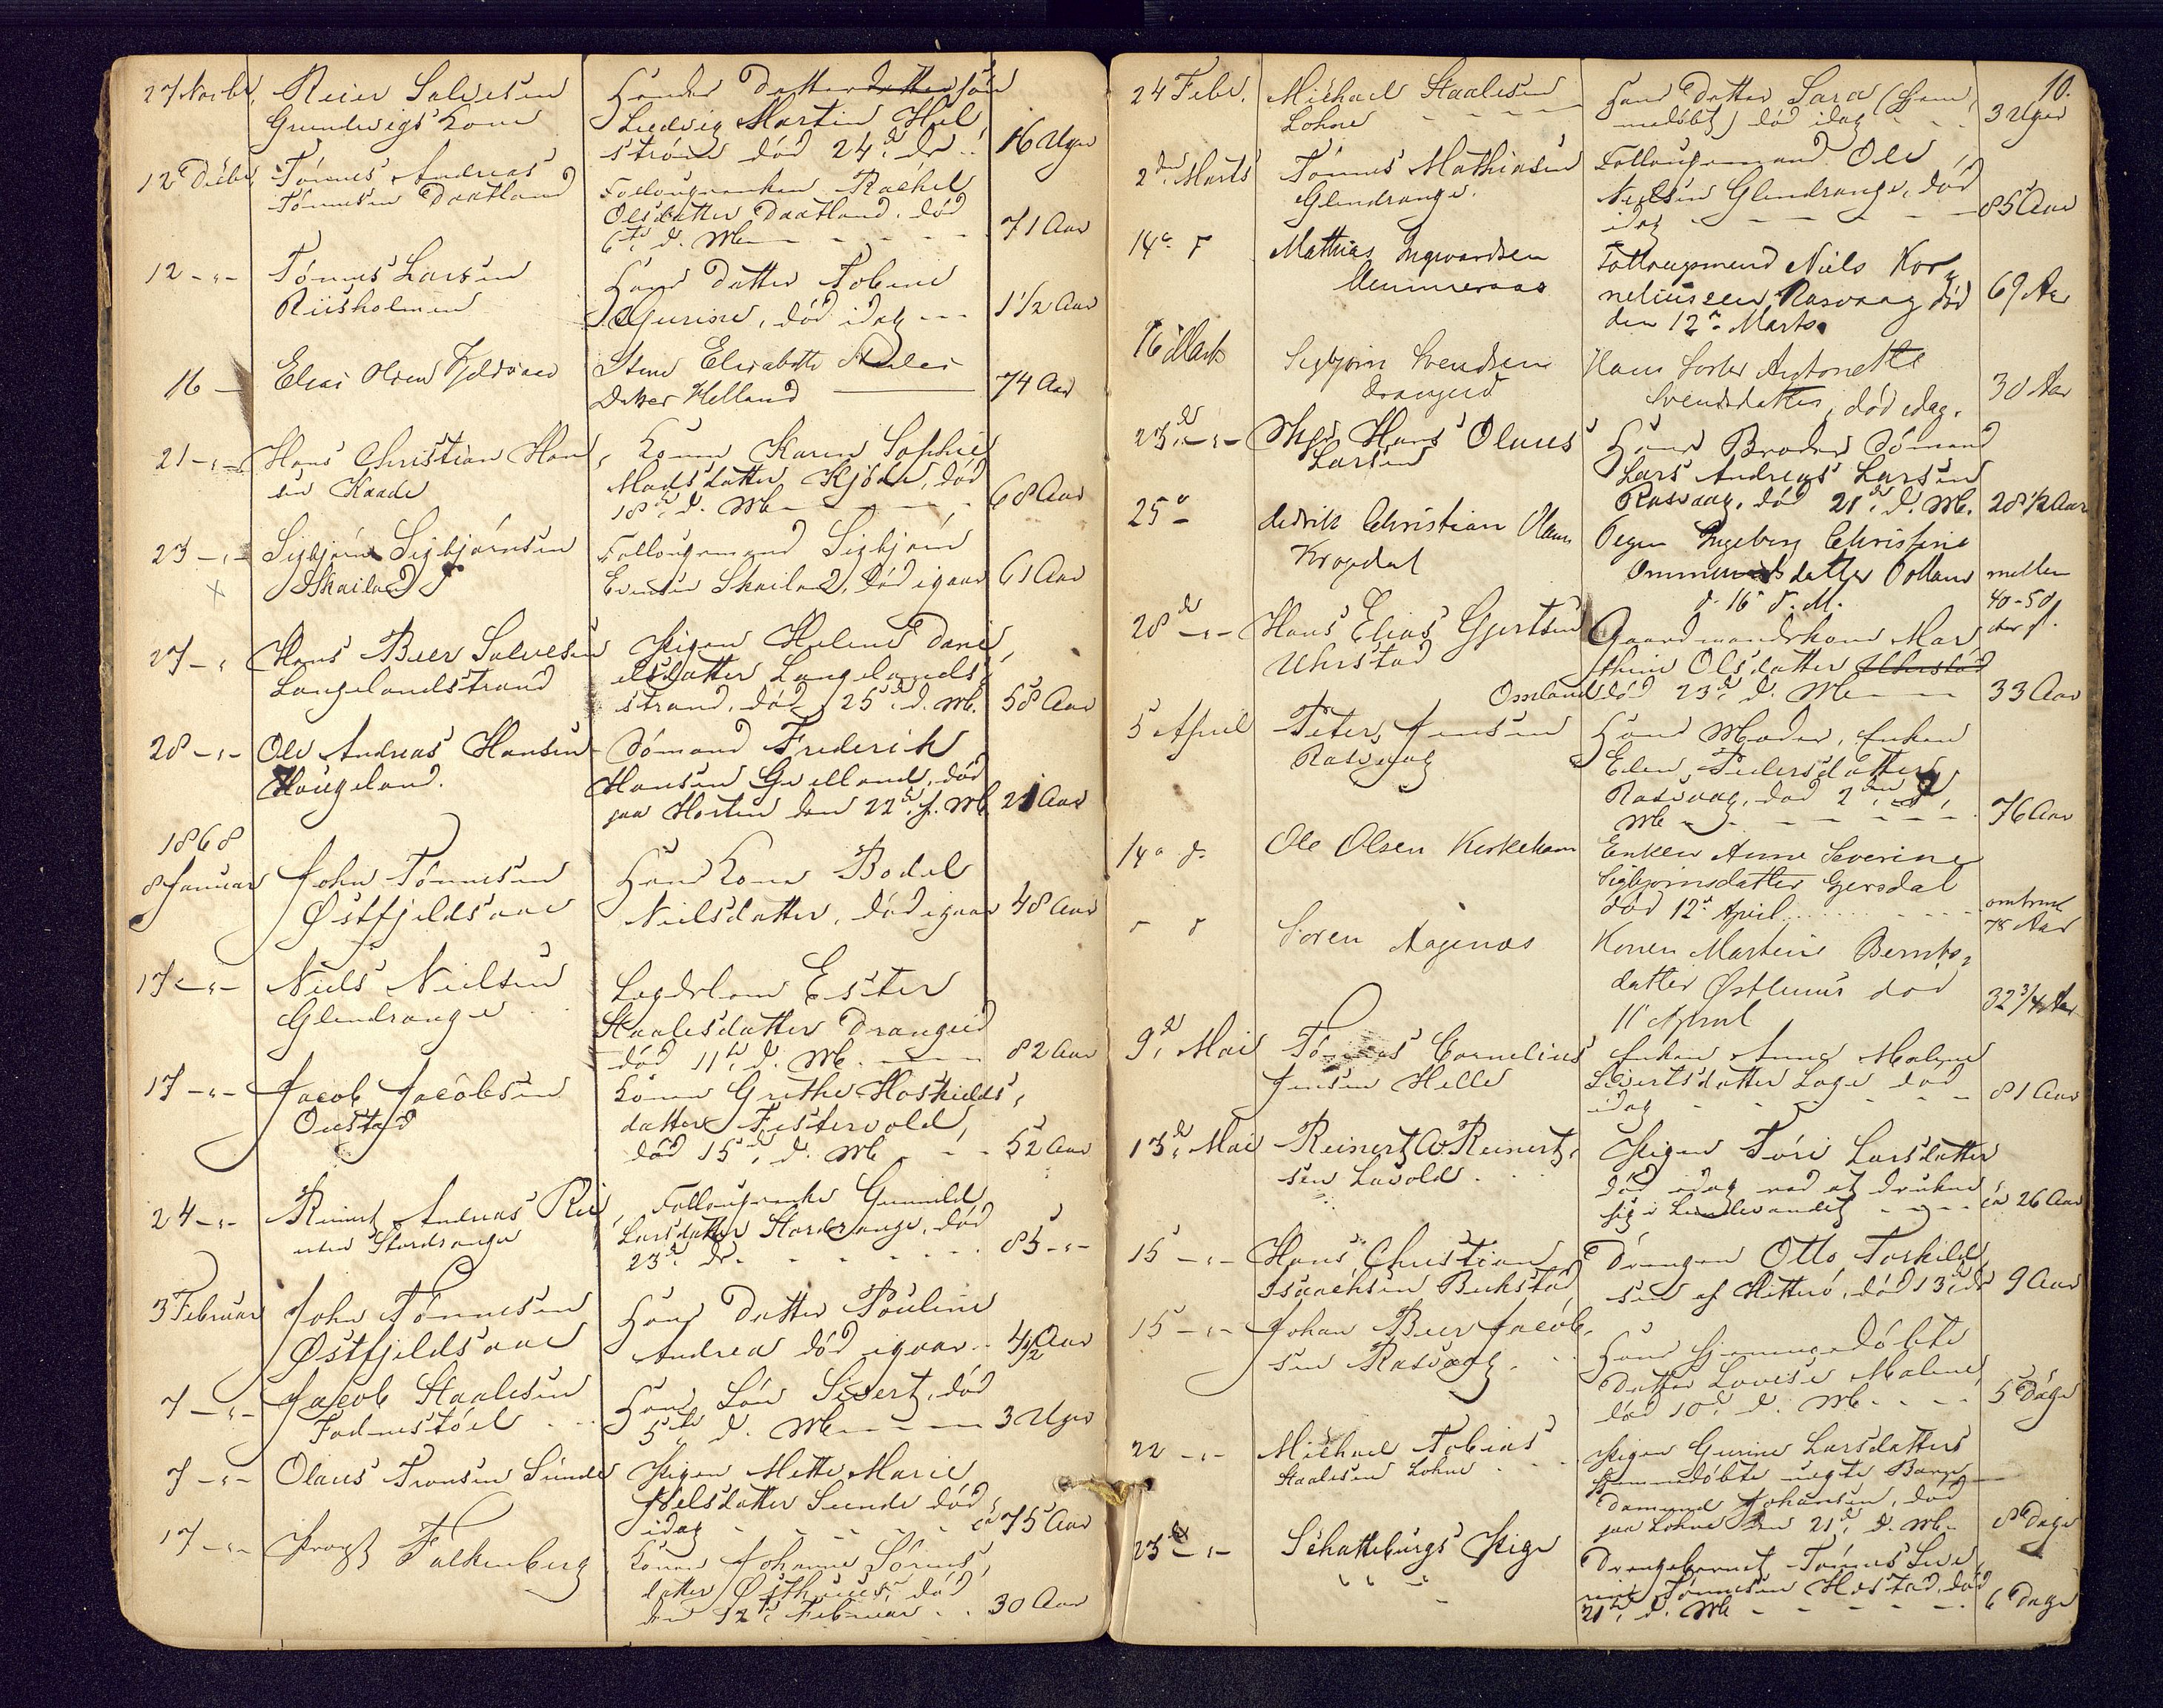 27 Novbr. Reier Salvesen
Grundvigs Kone
Hendes Datterdattersøn
Ludvig Martin Hel
strøm død 24de ds.
16 Uger
12 Decbr Tønnes Andreas
Tønnesen Daatland
Follougsenken Rachel
Olsdatter Daatland, død
6te d. M.
71 Aar
12 -"- Tønnes Larsen
Riisholmen
Hans Datter Tobine
Gurine, død idag
1 1/2 Aar
16 - Elias Olsen Fjeldsaae
Stine Elisabeth
Datter Helland
74 Aar
21 -"- Hans Christian Han
sen Kaade
Konen Karen Sophie
Madsdatter Kjøde, død
18de d. M.
68 Aar
23 -"- Sigbjørn Sigbjørnsen
Skailand
Follougsmand Sigbjørn
Evensen Skailand, død igaar
61 Aar
27 -"- Hans Beer Salvesen
Langelandstrand
Pigen Helene Dani
elsdatter Langelands
strand, død 25de d. M.
58 Aar
28 -"- Ole Andreas Hansen
Haugeland.
Sømand Frederik
Hansen Helland, død
paa Horten den 22de f. M.
21 Aar
1868
8 Januar John Tønnesen
Østfjeldsaae
Hans Kone Bodel
Nielsdatter, død igaar
48 Aar
17 -"- Niels Nielsen
Glendrange
Legdslem Ester
Staalesdatter Drangeid
død 11te d. M.
82 Aar
17 -"- Jacob Jacobsen
Oustad
Konen Grethe Haskilds
datter Festervold,
død 15de d. M.
52 Aar
24 -"- Reinert Andreas Rei
nertsen Stordrange
Follougsenke Gunnild
Larsdatter Stordrange, død
23de ds.
85 -"-
3 Februar John Tønnesen
Østfjeldsaae
Hans Datter Pouline
Andrea død igaar
4 1/2 Aar
7 -"- Jacob Staalesen
Fodnestøel
Hans Søn Sivert, død
5te d. M.
3 Uger
7 -"- Olaus Tronsen Sunde
Pigen Mette Marie
Nielsdatter Sunde død
idag
ca 75 Aar
17 -"- Provst Falkenberg
Konen Johanne Sørens
datter Østhuus død
den 12te Februar
30 Aar
10.
24 Febr. Michael Staalesen
Lohne
Hans Datter Sara (hjem
medøbt) død idag
3 Uger
2den Marts Tønnes Mathiasen
Glendrange.
Follougsmand Ole
Nielsen Glendrange, død
idag
85 Aar
14 Mathias Ingvardsen
Ummeraas
Follougsmand Niels Kor
neliussen Rasvaag død
den 12te Marts.
69 Aar
16 Marts Sigbjørn Svendsen
Drangeid
Hans Søster Antonette
Svendsdatter, død idag.
30 Aar
23de -"- Skpr. Hans Olaus
Larsen
Hans Broder Sømand
Lars Andreas Larsen
Rasvaag, død 21de d. M.
28 1/2 Aar
25 Hedvik Christian Olsen
Krogdal
Pigen Ingeborg Christine
Ommundsdatter
d. 16 d. M.
mellem
40-50
28de -"- Hans Elias Gjertsen
Uhrstad
Gaardmandskone Mar
thine Olsdatter Uhrstad
Omland død 23de d. M.
33 Aar
5 April Peter Jensen
Rasvaag
Hans Moder, Enken
Elen Pedersdatter
Rasvaag, død 2den d.
M.
76 Aar
14 d. Ole Olsen Kirkehavn
Enken Anne Severine
Sigbjørnsdatter Gjersdal
død 12te April
omtrent
78 Aar
Søren Aagenæs
Konen Martine Bernts
datter Østhuus død
11 April
32 3/4 Aar
9de Mai Tønnes Cornelius
Jensen Helle
Enken Anne Malene
Sivertsdatter Lage død
idag
81 Aar
13de Mai Reinert A. Reinert
sen Lavold
Pigen Tøri Larsdatter
død idag ved at drukne
sig i Lundevandet
ca 26 Aar
15 -"- Hans Christian
Isaachsen Bekstad
Drengen Otto Torkild
sen af Hitterø, død 13de ds
9 Aar
15 -"- Johan Beer Jacob
sen Rasvaag
Hans hjemmedøbte
Datter Lovise Malene,
død 10de d. M.
5 Dage
22 -"- Michael Tobias
Staalesen Lohne
Pigen Gurine Larsdatters
hjemmedøbte uegte Barn
Daniel Johansen, død
paa Lohne den 21de d. M.
8 Dage
23de -"- Schatteburgs Pige
Drengebarnet Tønnes Sve
ning Tønnesen Hostad, død
21de d. M.
6 Dage